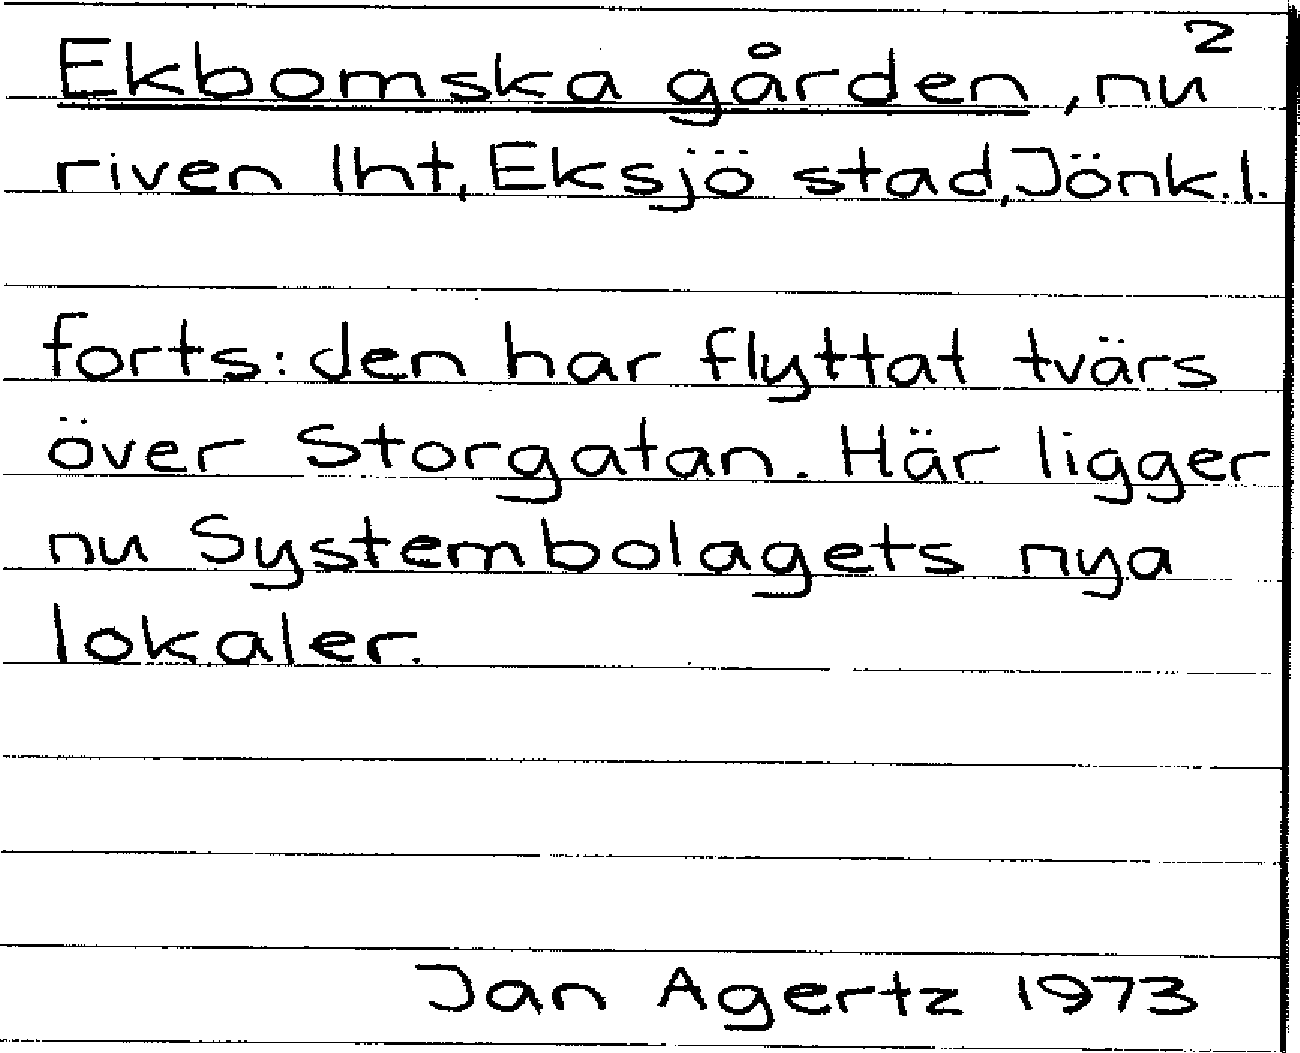 2
Ekbomska gården, nu
riven lht, Eksjö stad, Jönk.l.
forts: den har flyttat tvärs
över Storgatan. Här ligger
nu Systembolagets nya
lokaler.
Jan Agertz 1973